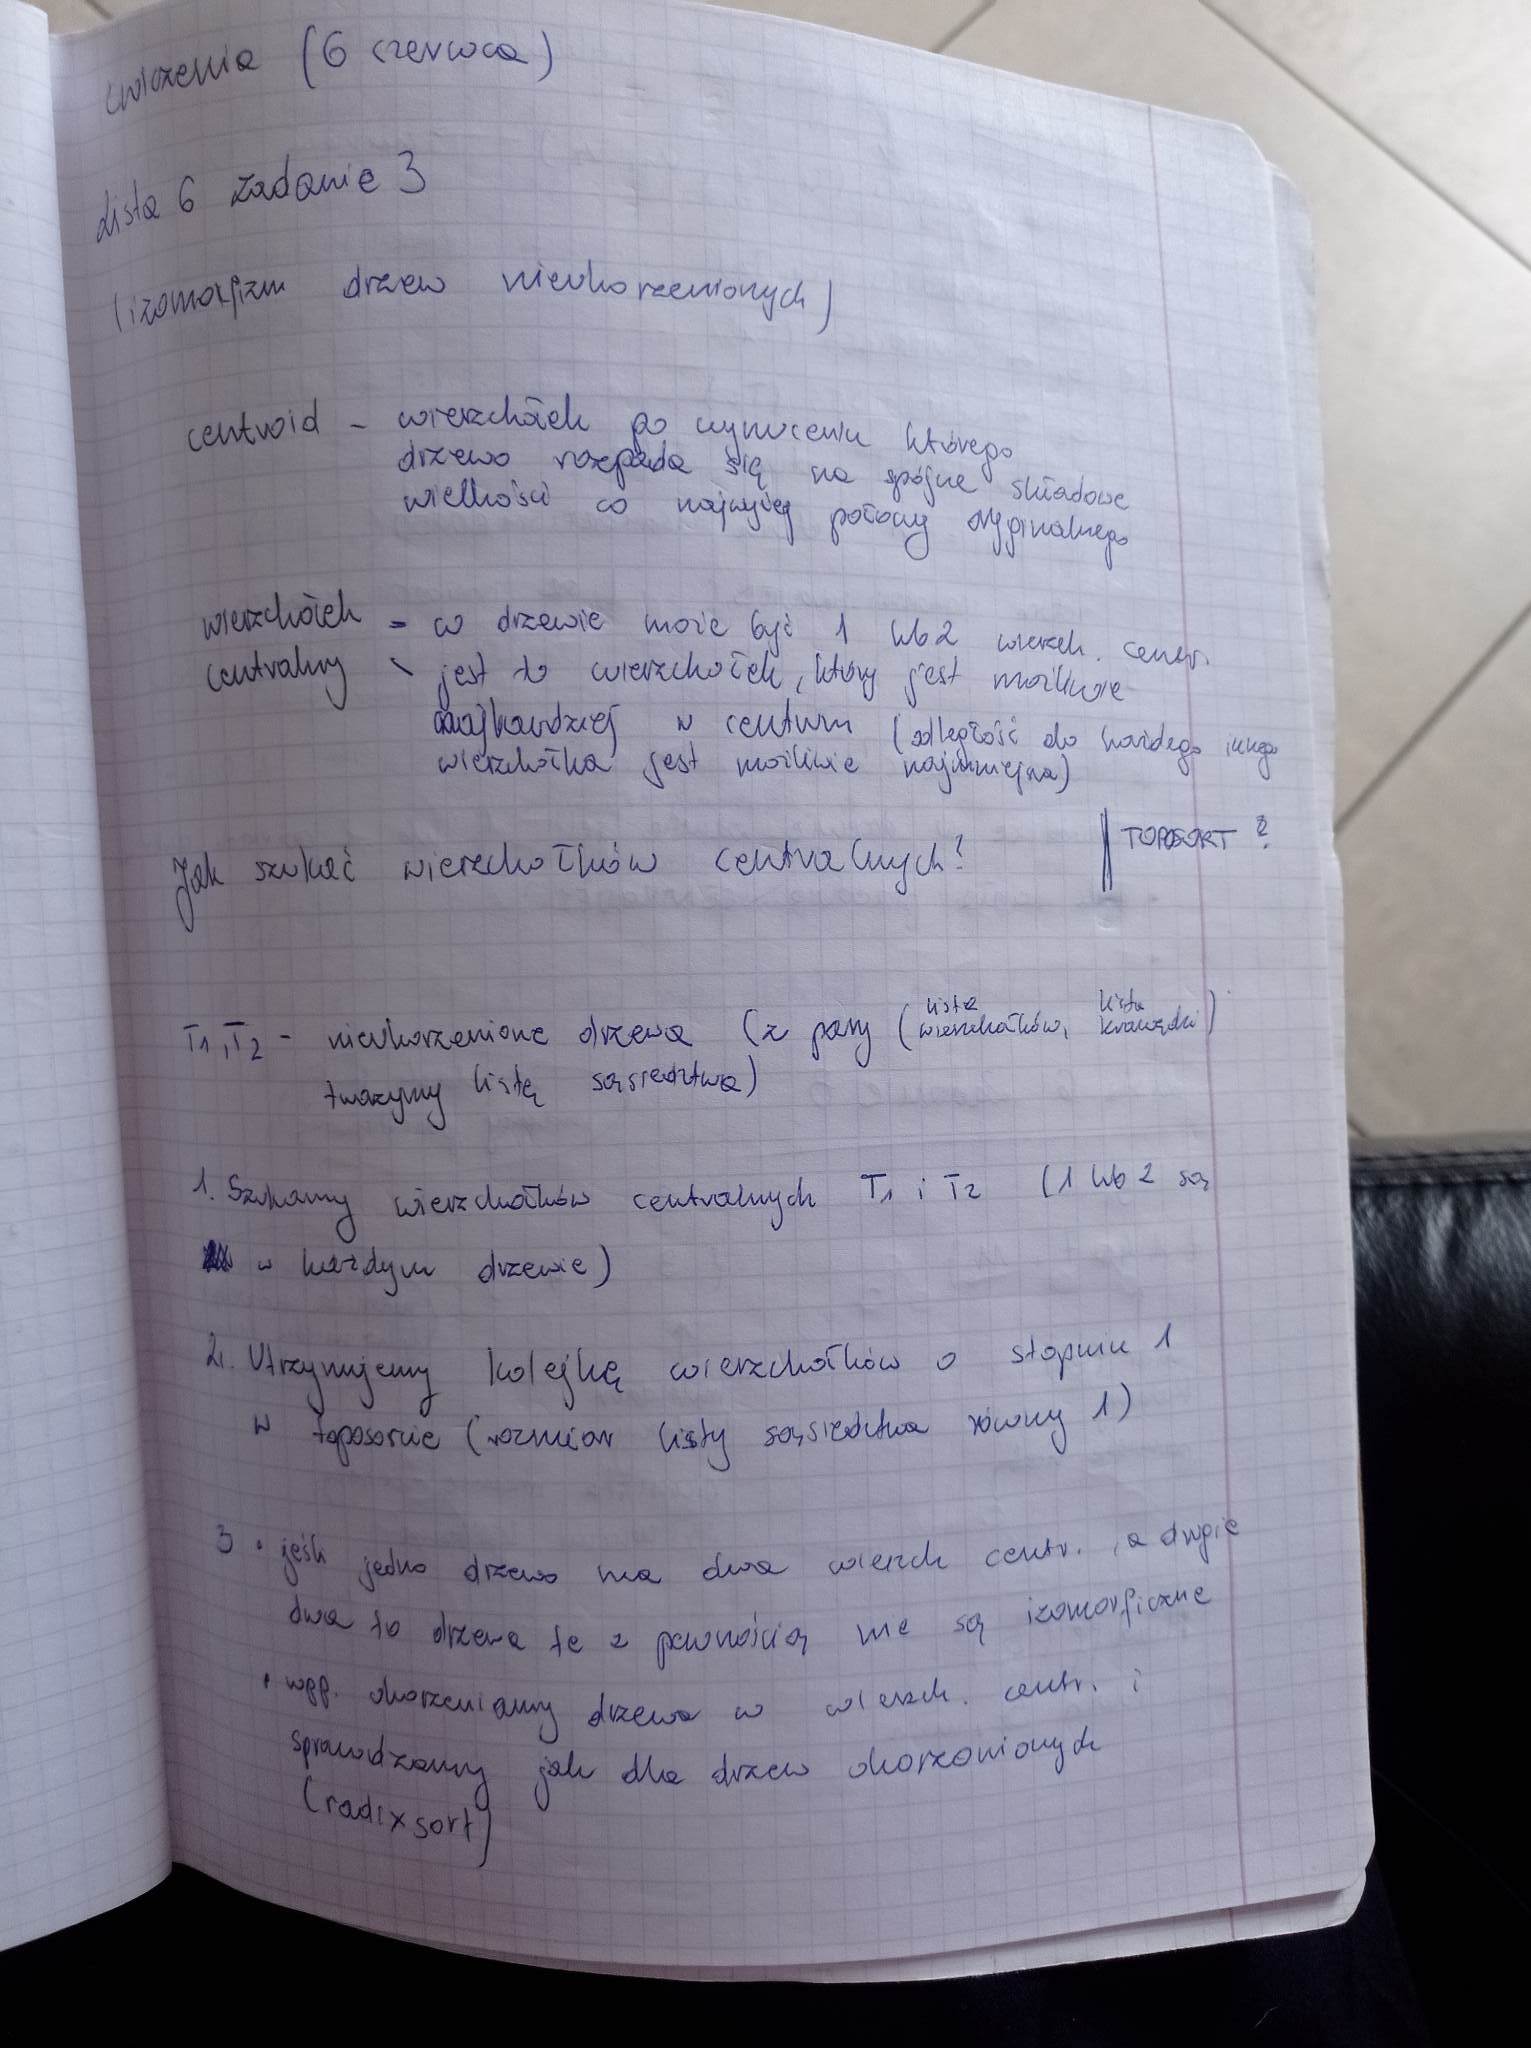 ćwiczenia (6 czerwca)
Lista 6 zadanie 3
(izomorfizm drzew nieukorzenionych)
centroid - wierzchołek po wyrzuceniu którego
drzewo rozpada się na spójne składowe
wielkości co najwyżej połowy oryginalnego
wierzchołek centralny - w drzewie może być 1 lub 2 wierzch. centr.
- jest to wierzchołek, który jest możliwie
najbardziej w centrum (odległość do każdego innego
wierzchołka jest możliwie najmniejsza)
Jak szukać wierzchołków centralnych? || TOPOSORT?
T1, T2 - nieukorzenione drzewa (z pary (lista wierzchołków, lista krawędzi)
tworzymy listę sąsiedztwa)
1. Szukamy wierzchołków centralnych T1 i T2 (1 lub 2 są
w każdym drzewie)
2. Utrzymujemy kolejkę wierzchołków o stopniu 1
w toposorcie (rozmiar listy sąsiedztwa równy 1)
3 • jeśli jedno drzewo ma dwa wierzch centr., a drugie
dwa to drzewa te z pewnością nie są izomorficzne
• wpp. ukorzeniamy drzewa w wierzch. centr. i
sprawdzamy jak dla drzew ukorzenionych
(radix sort)